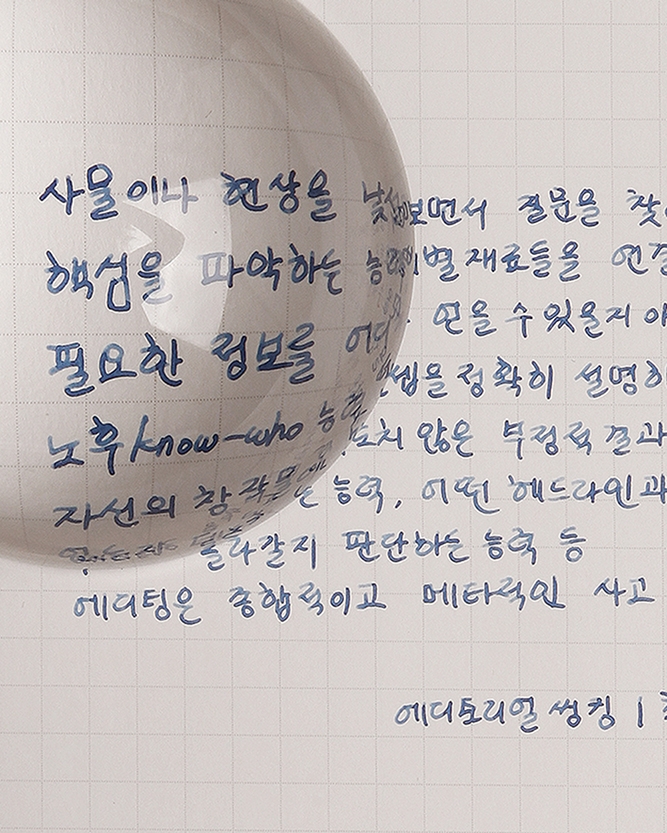 사물이나 현상을 낯설게 보면서 질문을 찾
핵심을 파악하는 능력, 개별 재료들을 연결
필요한 정보를 어디 얻을 수 있을지 아
노후 know-who 능력 셉을 정확히 설명하
치 않은 부정적 결과
자신의 창작물 는 능력, 어떤 헤드라인과
올라갈지 판단하는 능력 등
에디팅은 종합적이고 메타적인 사고
에디토리얼 씽킹 |